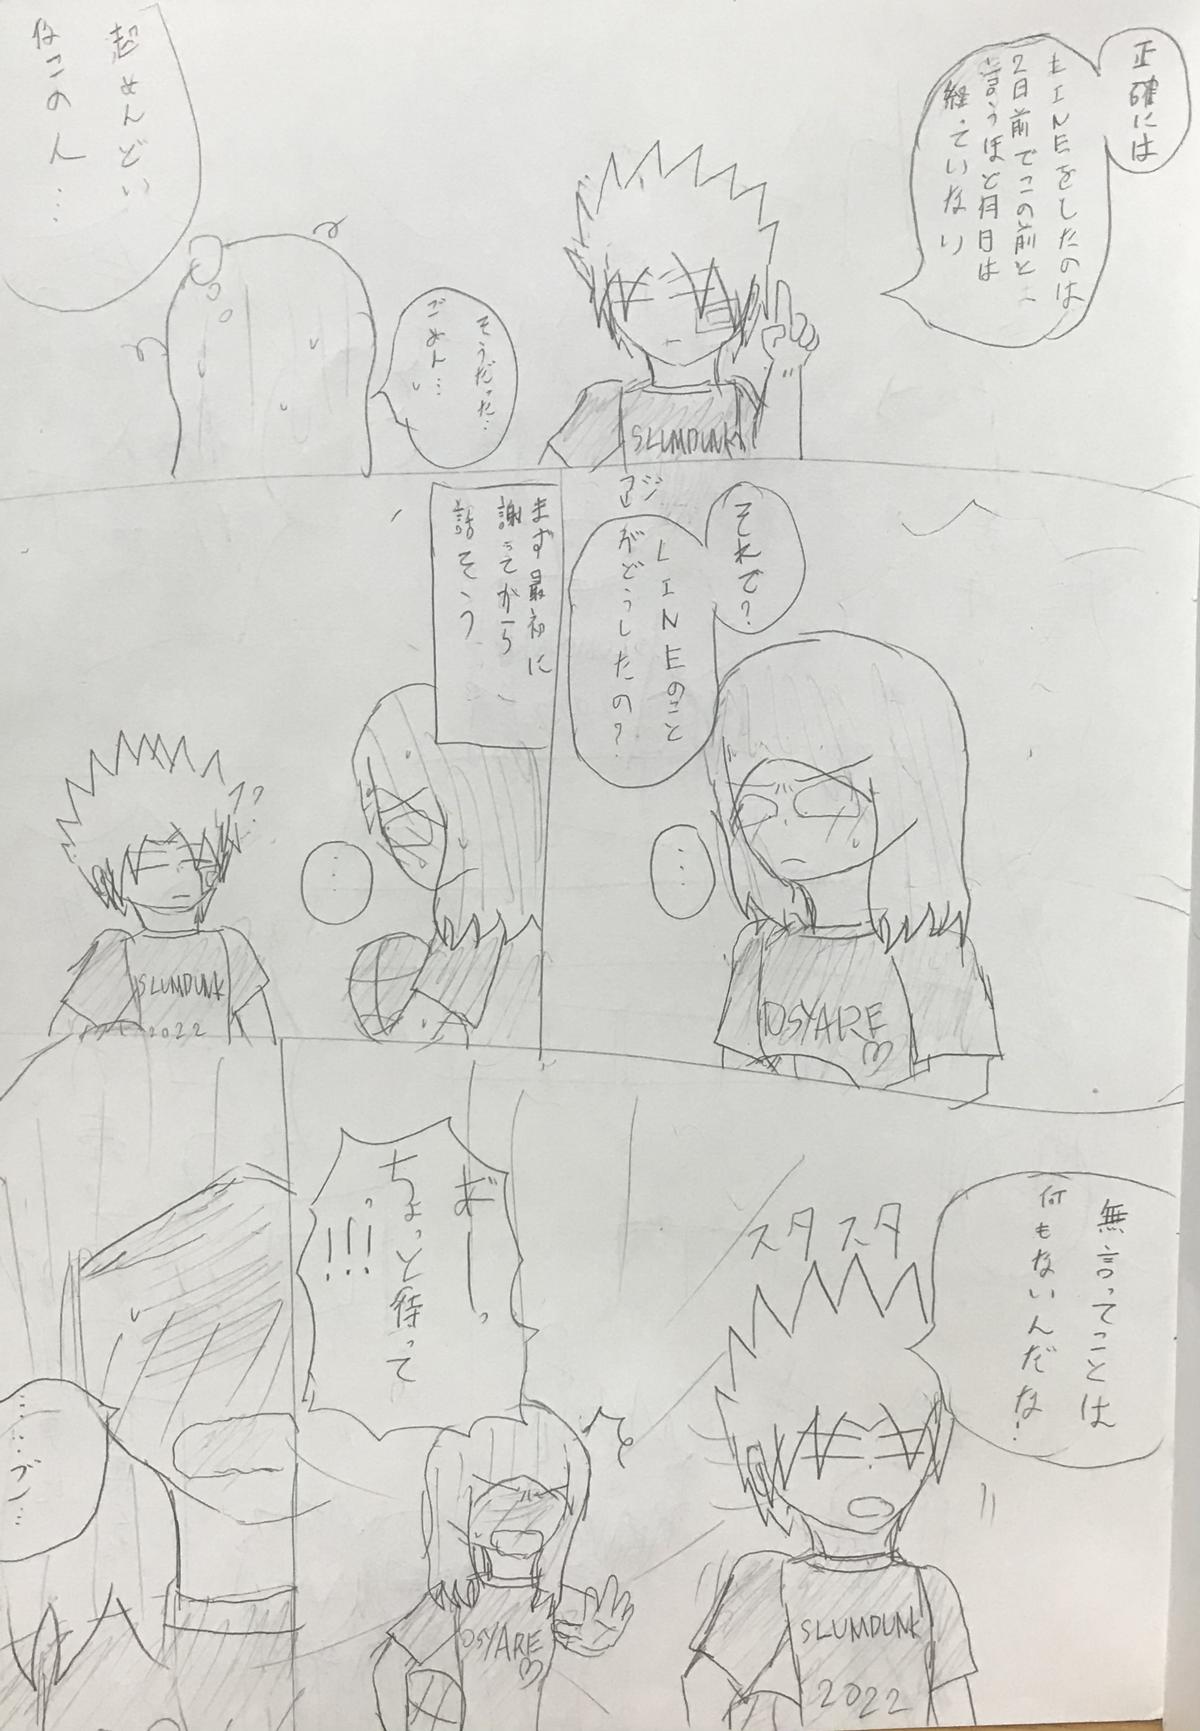 正確には
LINEをしたのは
2日前でこの前と
言うほど月日は
経っていない
SLUMDUNK
そうだった…
ごめん…
超めんどい
なこの人…
それで?
LINEのこと
がどうしたの?
…
OSYARE
まず最初に
謝ってから
話そう
…
??
SLUMDUNK
2022
無言ってことは
何もないんだな!
スタスタ
SLUMDUNK
2022
ちょっと待って
っ!!!
OSYARE